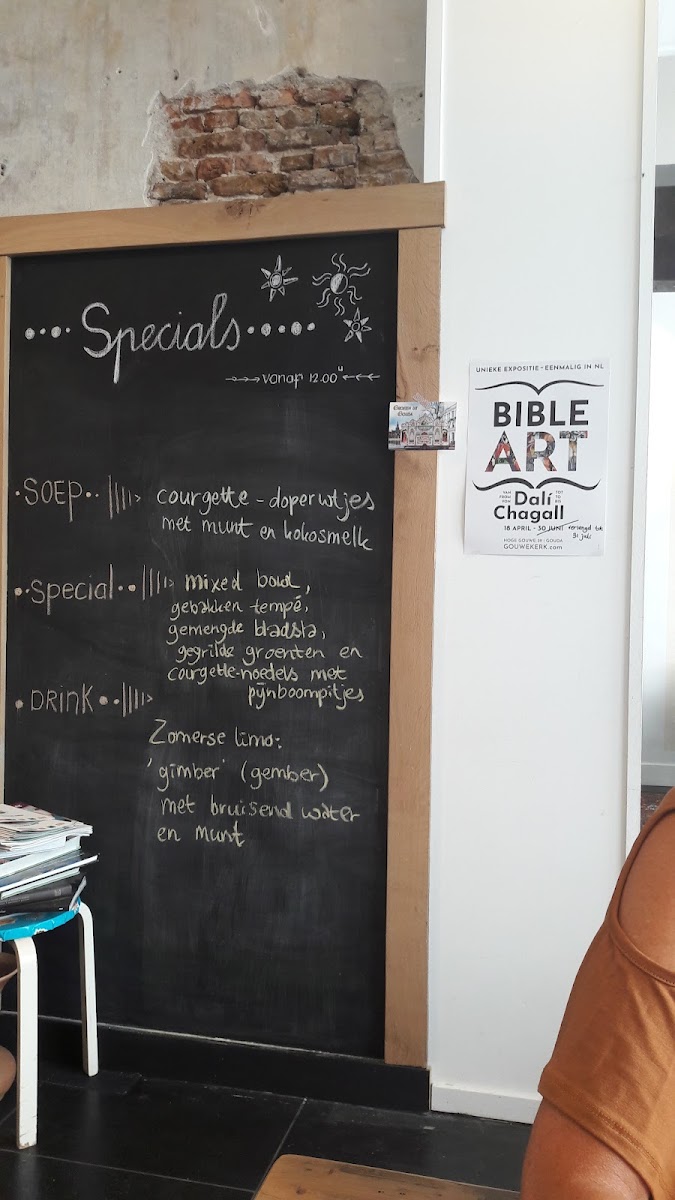 Specials
vanaf 12.00 u
SOEP
courgette - doperwtjes
met munt en kokosmelk
Special
mixed bowl,
gebakken tempé,
gemengde bladsla,
gegrilde groenten en
courgette-noedels met
pijnboompitjes
DRINK
Zomerse limo:
'gimber' (gember)
met bruisend water
en munt
UNIEKE EXPOSITIE - EENMALIG IN NL
BIBLE
ART
VAN FROM VON Dalí TOT TO BIS
Chagall
18 APRIL - 30 JUNI verlengd tot
31 juli
HOGE GOUWE 41 | GOUDA
GOUWEKERK.com